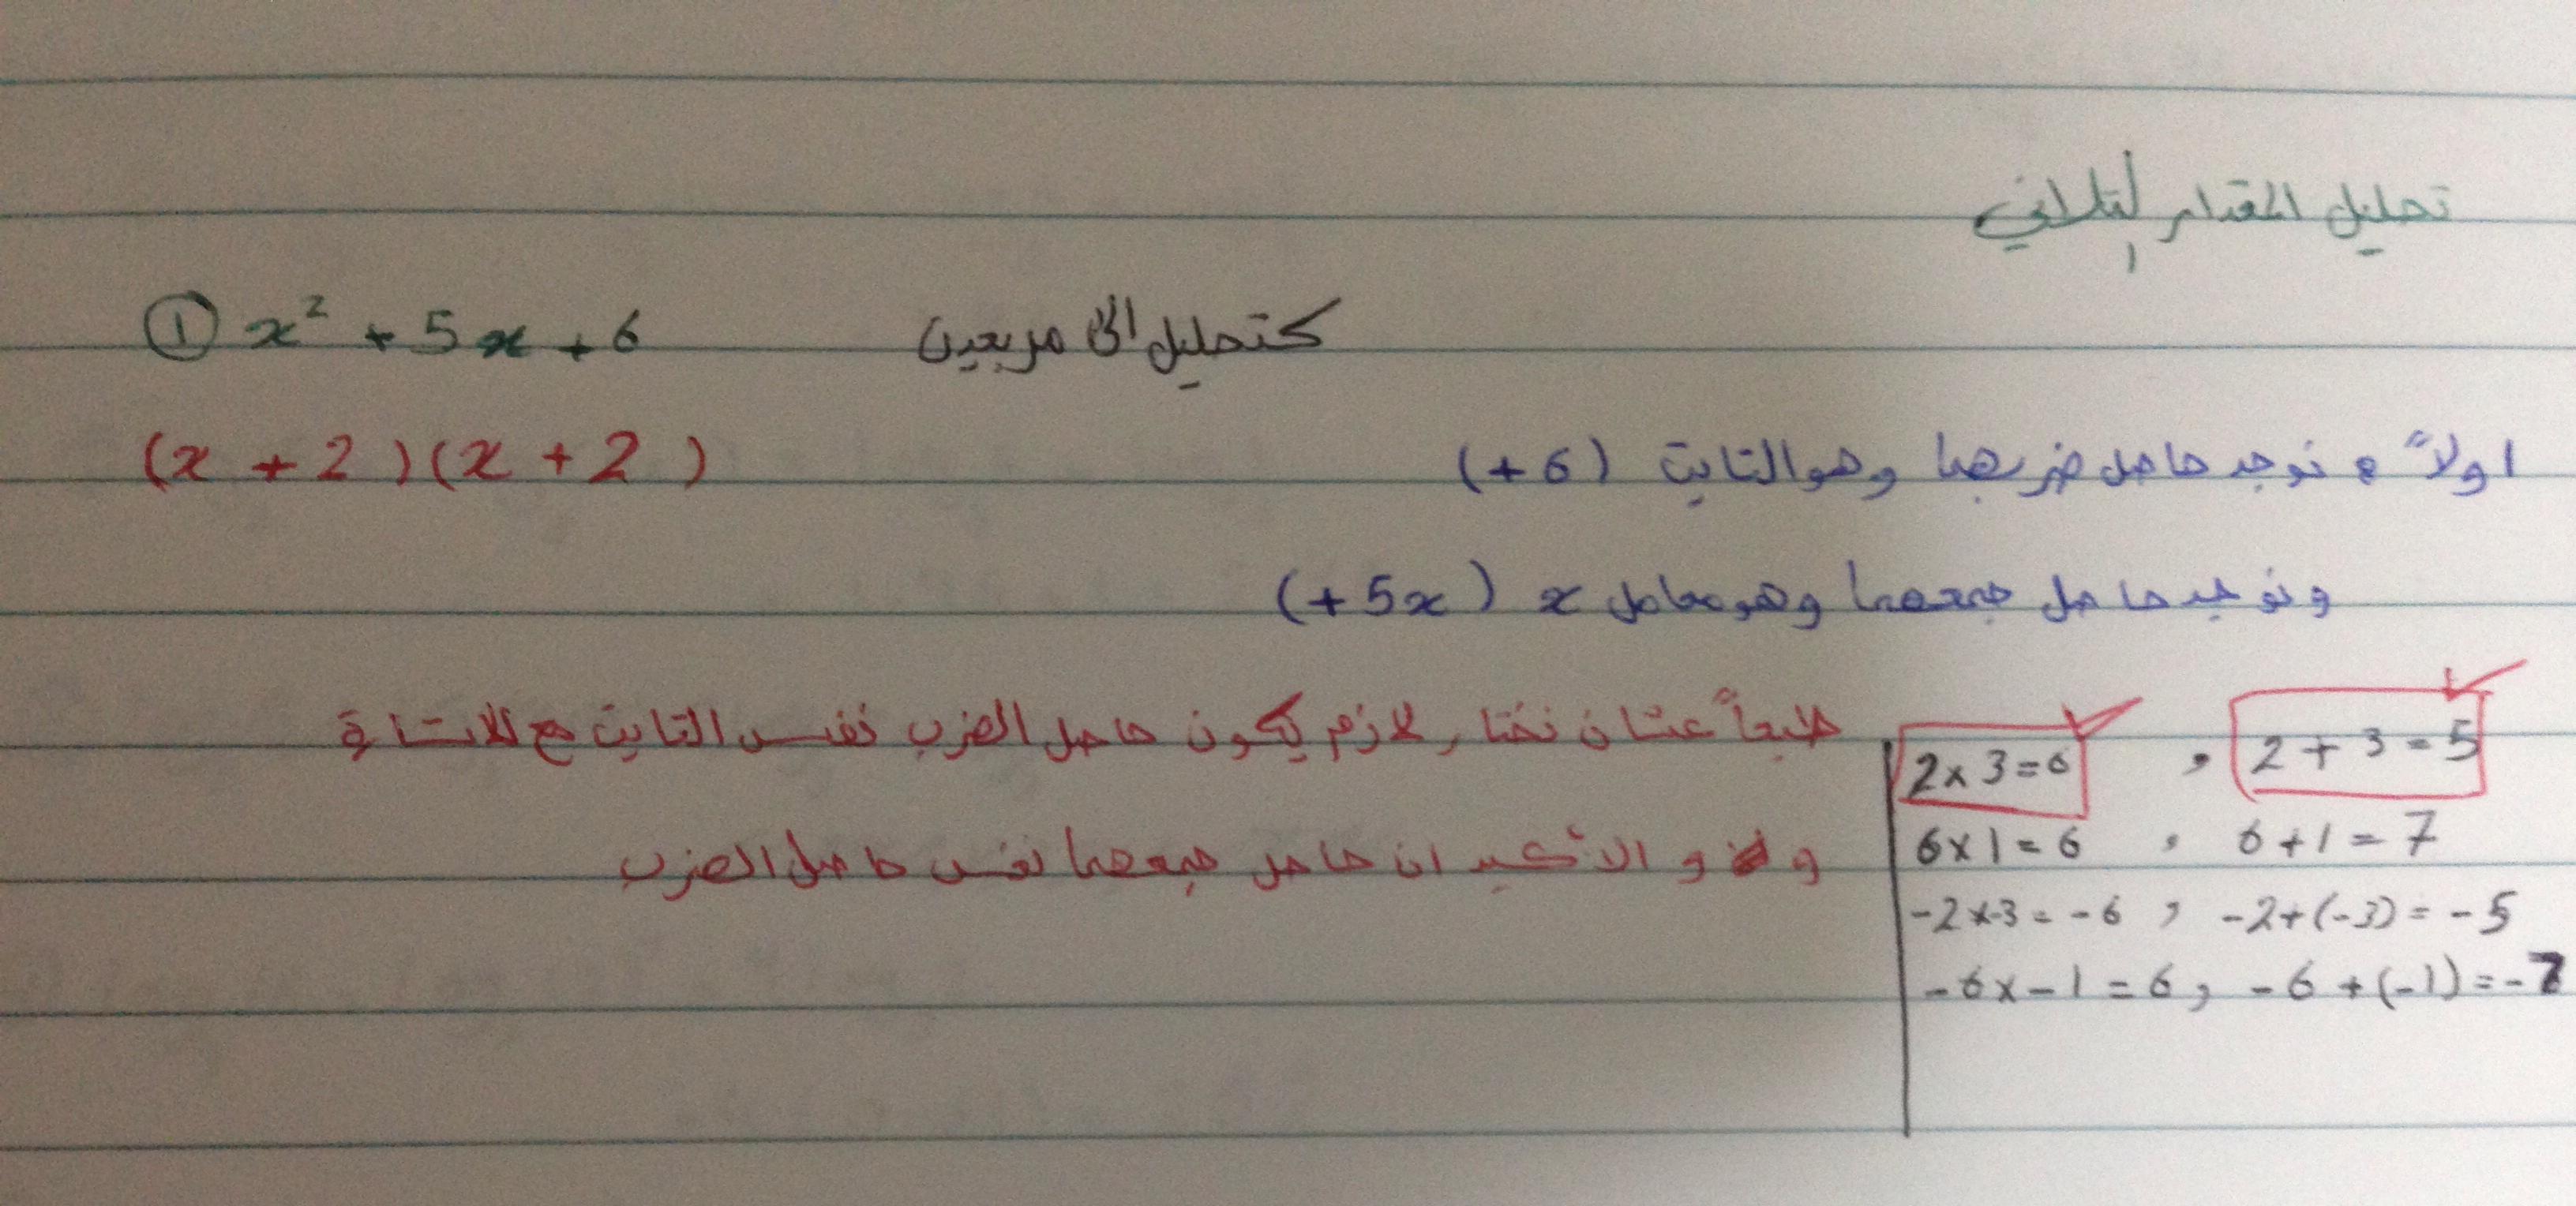 تحليل المقدار الثلاثي
① x² + 5x + 6 كتحليل الى مربعين
(x + 2)(x + 2)
اولاً: نوجد حاصل ضربهما وهو الثابت (+6)
ونوجد حاصل جمعهما وهو معامل x (+5x)
طبعاً عشان نختار لازم يكون حاصل الضرب نفس الثابت مع الاشارة
و الأكيد ان حاصل جمعهما نفس حاصل الضرب
2×3=6 , 2+3=5
6×1=6 , 6+1=7
-2×-3=-6 , -2+(-3)=-5
-6×-1=6, -6+(-1)=-7